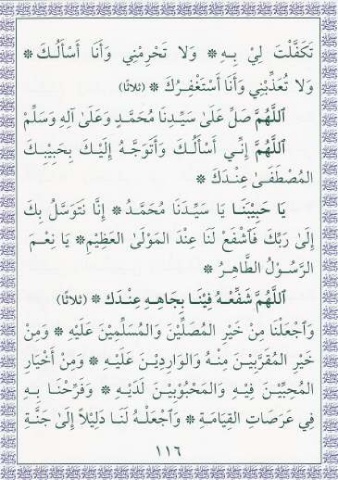 تَكَفَّلْتَ لِيْ بِهِ * وَلَا تَحْرِمْنِي وَأَنَا أَسْأَلُكَ *
وَلَا تُعَذِّبْنِي وَأَنَا أَسْتَغْفِرُكَ * (ثلاثا)
اَللّٰهُمَّ صَلِّ عَلَىٰ سَيِّدِنَا مُحَمَّدٍ وَعَلَىٰ آلِهِ وَسَلِّمْ
اَللّٰهُمَّ إِنِّي أَسْأَلُكَ وَأَتَوَجَّهُ إِلَيْكَ بِحَبِيْبِكَ
المُصْطَفَىٰ عِنْدَكَ *
يَا حَبِيْبَنَا يَا سَيِّدَنَا مُحَمَّدُ * إِنَّا نَتَوَسَّلُ بِكَ
إِلَىٰ رَبِّكَ فَاشْفَعْ لَنَا عِنْدَ المَوْلَىٰ العَظِيْمِ * يَا نِعْمَ
الرَّسُوْلُ الطَّاهِرُ *
اَللّٰهُمَّ شَفِّعْهُ فِيْنَا بِجَاهِهِ عِنْدَكَ * (ثلاثا)
وَاجْعَلْنَا مِنْ خَيْرِ المُصَلِّيْنَ وَالمُسَلِّمِيْنَ عَلَيْهِ * وَمِنْ
خَيْرِ المُقَرَّبِيْنَ مِنْهُ وَالوَارِدِيْنَ عَلَيْهِ * وَمِنْ أَخْيَارِ
المُحِبِّيْنَ فِيْهِ وَالمَحْبُوْبِيْنَ لَدَيْهِ * وَفَرِّحْنَا بِهِ
فِي عَرَصَاتِ القِيَامَةِ * وَاجْعَلْهُ لَنَا دَلِيْلًا إِلَىٰ جَنَّةِ
١١٦